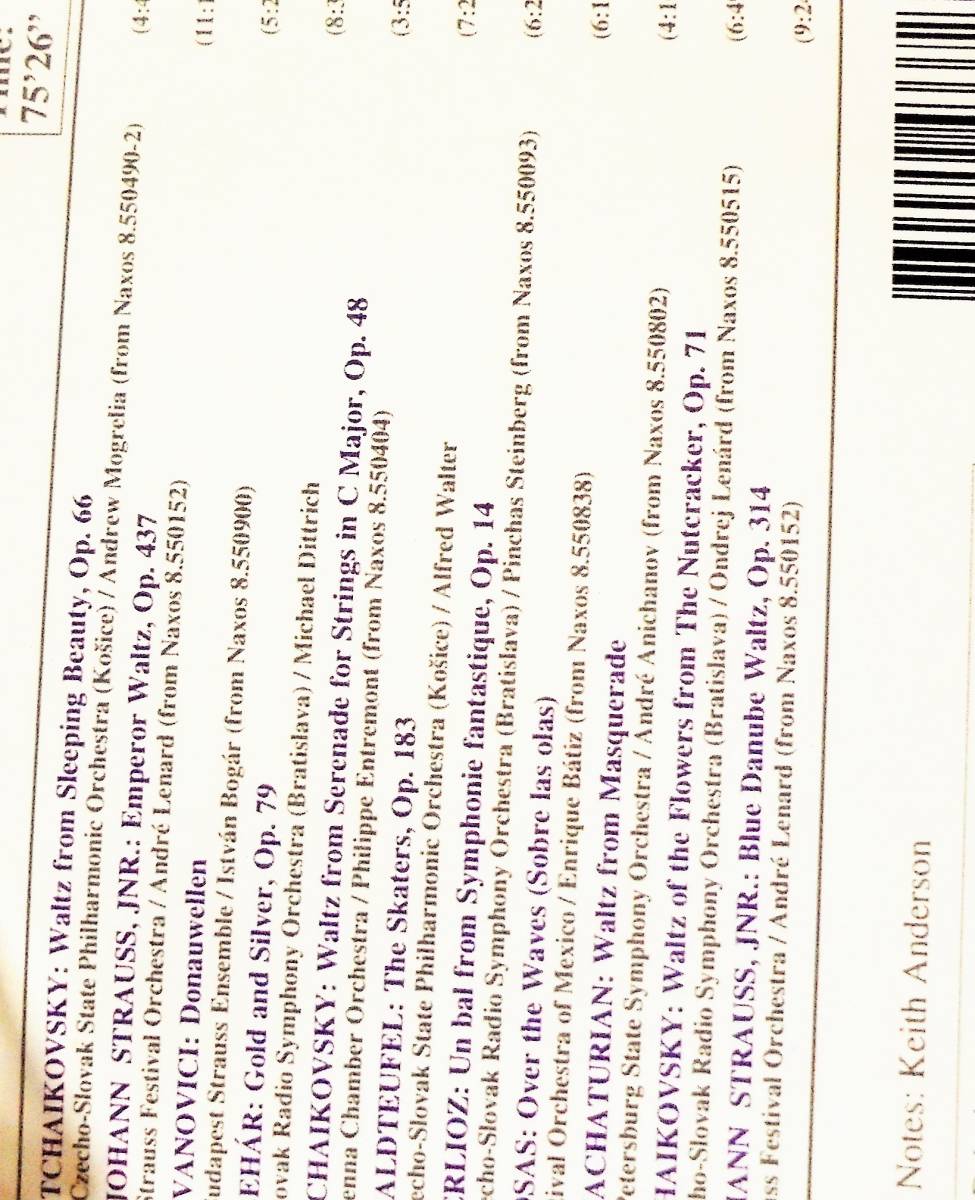 Time:
75'26"
TCHAIKOVSKY: Waltz from Sleeping Beauty, Op. 66 (4:4
Czecho-Slovak State Philharmonic Orchestra (Košice) / Andrew Mogrelia (from Naxos 8.550490-2)
JOHANN STRAUSS, JNR.: Emperor Waltz, Op. 437 (11:1
Strauss Festival Orchestra / André Lenard (from Naxos 8.550152)
VANOVICI: Donauwellen (5:2
udapest Strauss Ensemble / István Bogár (from Naxos 8.550900)
EHÁR: Gold and Silver, Op. 79 (8:3
ovak Radio Symphony Orchestra (Bratislava) / Michael Dittrich
CHAIKOVSKY: Waltz from Serenade for Strings in C Major, Op. 48 (3:5
enna Chamber Orchestra / Philippe Entremont (from Naxos 8.550404)
ALDTEUFEL: The Skaters, Op. 183 (7:2
echo-Slovak State Philharmonic Orchestra (Košice) / Alfred Walter
ERLIOZ: Un bal from Symphonie fantastique, Op. 14 (6:2
echo-Slovak Radio Symphony Orchestra (Bratislava) / Pinchas Steinberg (from Naxos 8.550093)
OSAS: Over the Waves (Sobre las olas) (6:1
ival Orchestra of Mexico / Enrique Bátiz (from Naxos 8.550838)
ACHATURIAN: Waltz from Masquerade (4:1
Petersburg State Symphony Orchestra / André Anichanov (from Naxos 8.550802)
HAIKOVSKY: Waltz of the Flowers from The Nutcracker, Op. 71 (6:4
ho-Slovak Radio Symphony Orchestra (Bratislava) / Ondrej Lenárd (from Naxos 8.550515)
HANN STRAUSS, JNR.: Blue Danube Waltz, Op. 314 (9:2
ss Festival Orchestra / André Lenard (from Naxos 8.550152)
Notes: Keith Anderson